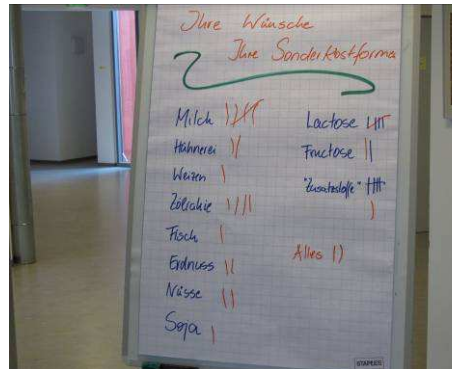 Ihre Wünsche
Ihre Sonderkostformen
Milch
Hühnerei
Weizen
Zöliakie
Fisch
Erdnuss
Nüsse
Soja
Lactose
Fructose
"Zusatzstoffe"
Alles
STAPLES